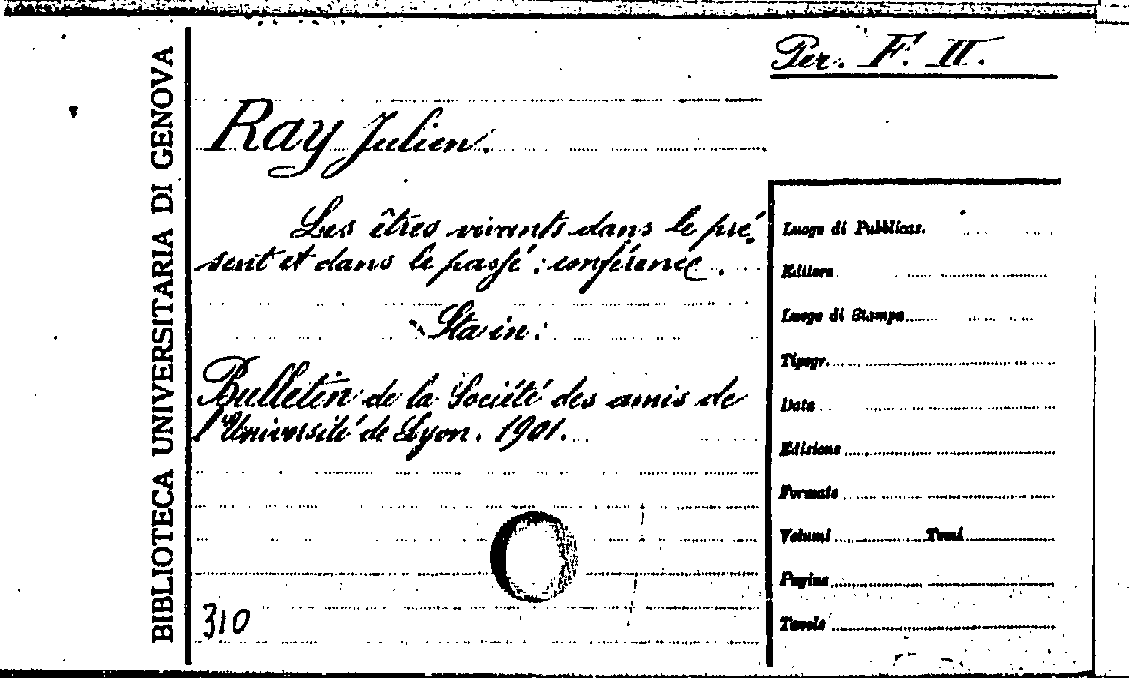 Per. F. II.
BIBLIOTECA UNIVERSITARIA DI GENOVA
Ray Julien.
Les êtres vivants dans le pré-
sent et dans le passé : conférence.
Sta in:
Bulletin de la Société des amis de
l'Université de Lyon. 1901.
310
Luogo di Pubblicaz.
Editore
Luogo di Stampa
Tipogr.
Data
Edizione
Formato
Volumi Tomi
Pagine
Tavole